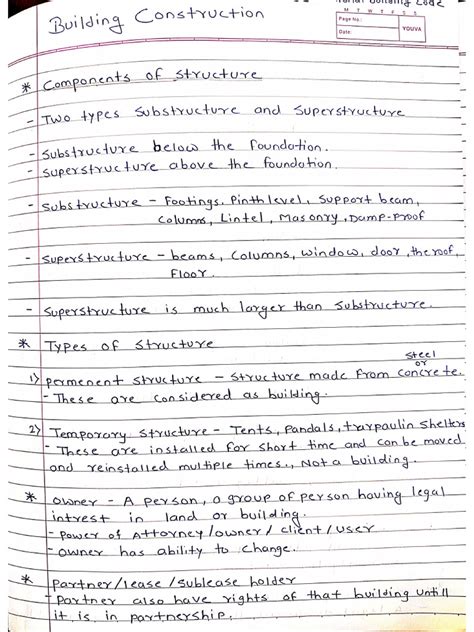 Building Code
M T W T F S S
Page No.:
Date:
YOUVA
Building Construction
* Components of structure
- Two types substructure and superstructure
- Substructure below the foundation.
- Superstructure above the foundation.
- Substructure - Footings, Pinth level, Support beam,
Columns, Lintel, Masonry, Damp-Proof
- Superstructure - beams, Columns, window, door, the roof,
Floor.
- Superstructure is much larger than substructure.
* Types of structure
steel
or
1) permenent structure - structure made from concrete.
- These are considered as building.
2) Temporary structure - Tents, Pandals, trarpaulin shelters
- These are installed for short time and can be moved
and reinstalled multiple times., Not a building.
* owner - A person, a group of person having legal
intrest in land or building.
- power of Attorney/owner/client/user
- owner has ability to change.
* Partner/lease/sublease holder
- Partner also have rights of that building untill
it is in partnership.